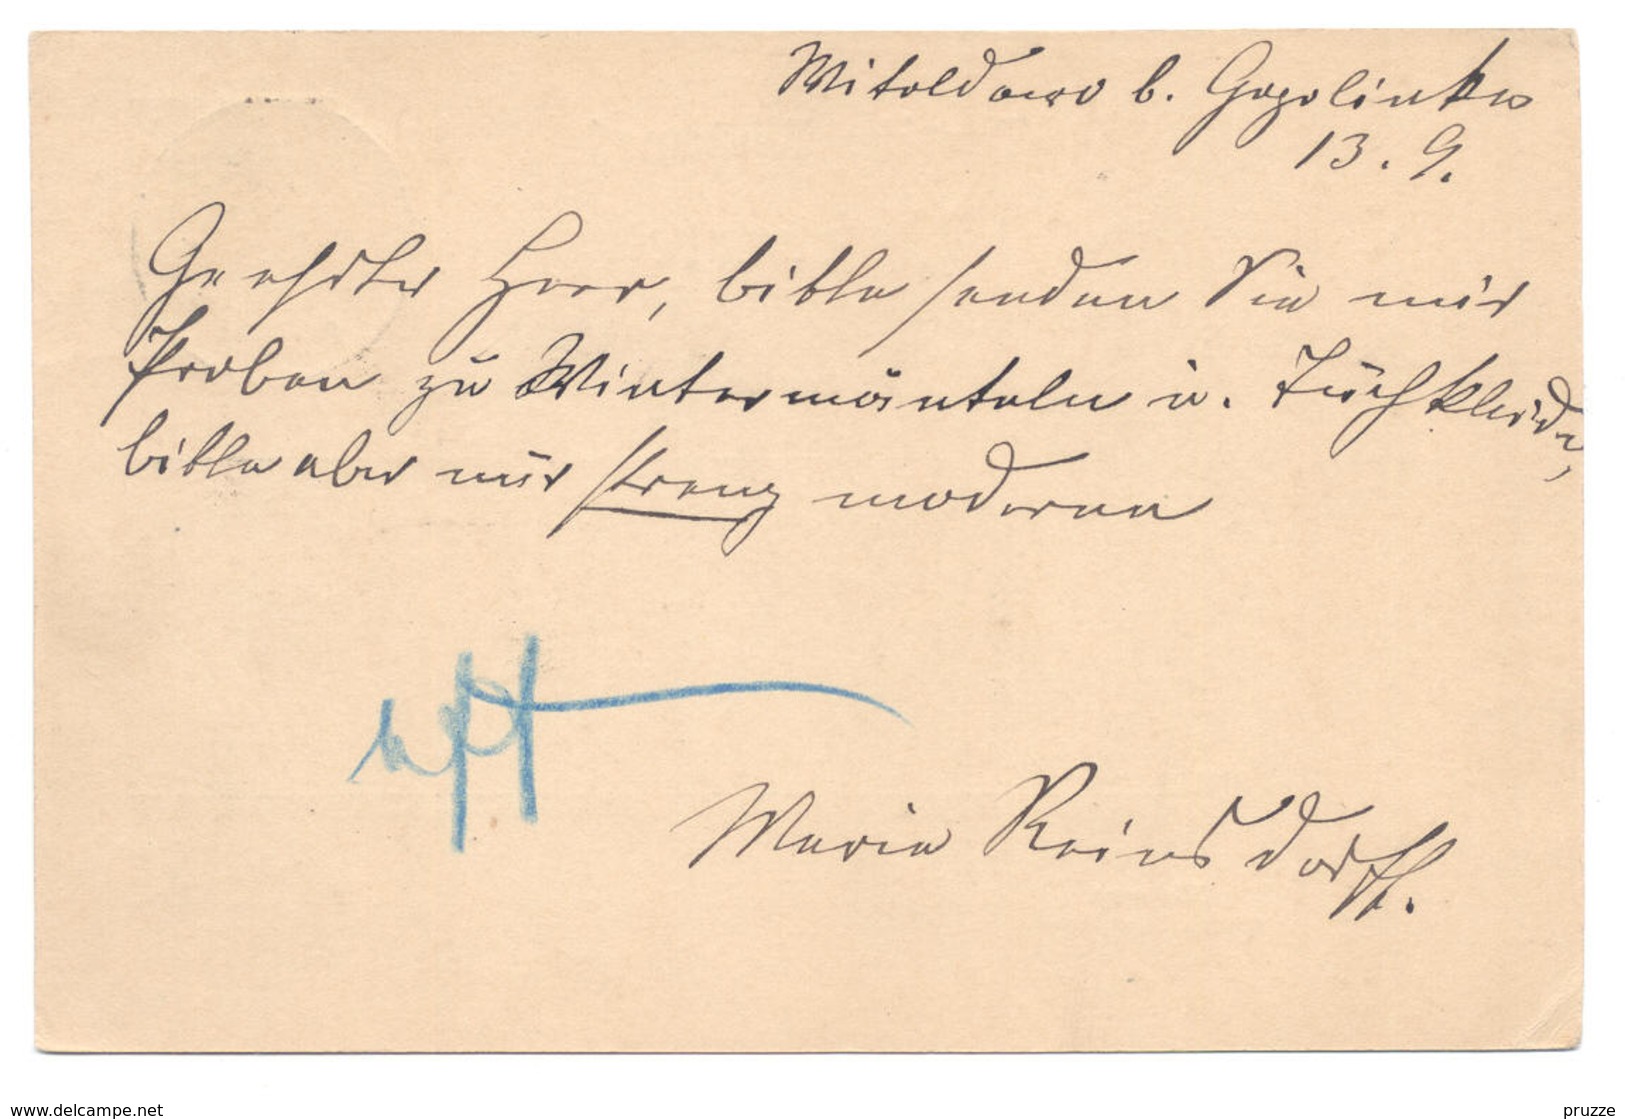 Witoldowo b. Gogolinke
13. 9.
Geehrter Herr, bitte senden Sie mir
Proben zu Wintermänteln u. Tuchkleide,
bitte aber nur streng modernen
Maria Reinsdorff.
www.delcampe.net
pruzze